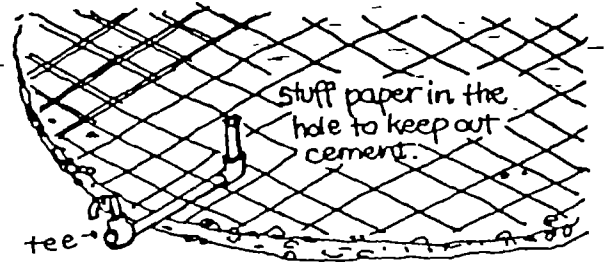 stuff paper in the
hole to keep out
cement.
tee